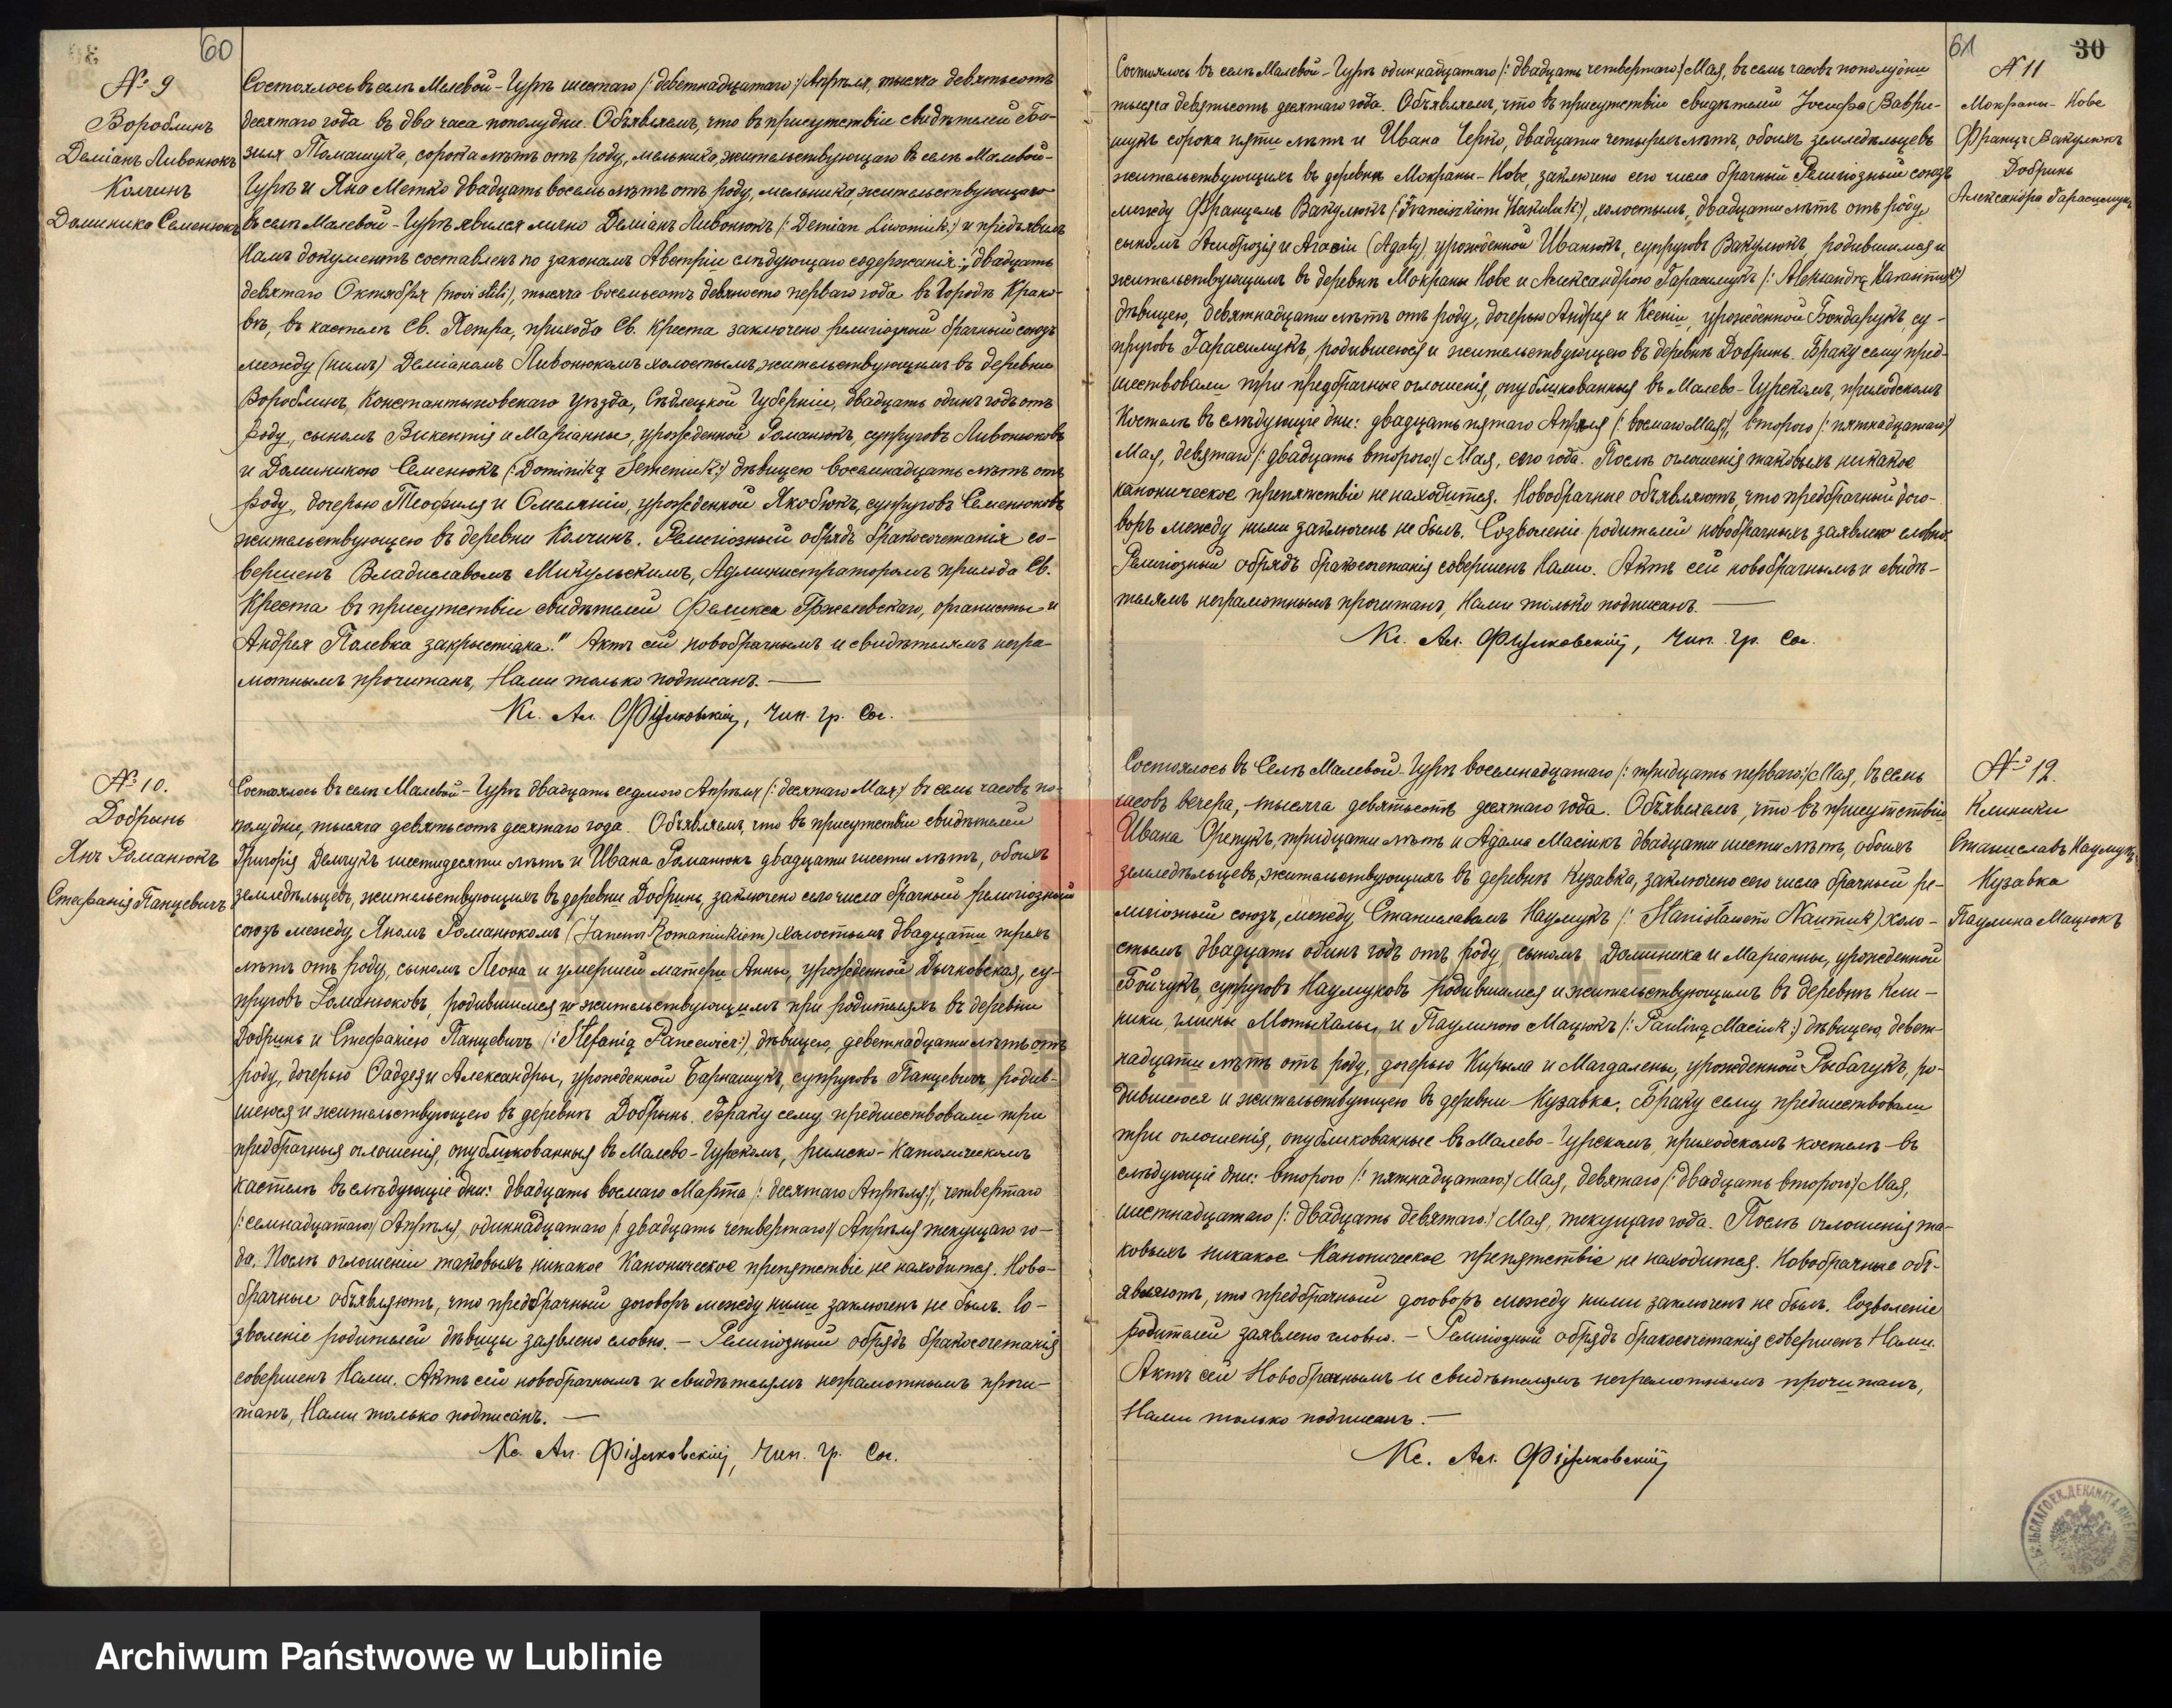 60
№ 9
Вороблинъ
Деміанъ Ливонюкъ
Колчинъ
Доминика Семенюкъ
Состоялось въ селѣ Малевой-Гурѣ шестаго /: девятнадцатаго :/ Апрѣля, тысяча девятьсотъ
десятаго года въ два часа пополудни. Объявляемъ, что въ присутствіи свидѣтелей Ба-
зиля Томашука, сорока лѣтъ отъ роду, мельника, жительствующаго въ селѣ Малевой-
Гурѣ и Яна Метко двадцать восемь лѣтъ отъ роду, мельника, жительствующаго
въ селѣ Малевой-Гурѣ явился лично Деміанъ Ливонюкъ /: Demian Liwoniuk :/ и предъявилъ
Намъ документъ составленъ по законамъ Австріи слѣдующаго содержанія: „двадцать
девятаго Октября (novi stili), тысяча восемьсотъ девяносто перваго года въ Городѣ Крако-
вѣ, въ костелѣ Св. Петра, прихода Св. Креста заключено религіозный брачный союзъ
между (нимъ) Деміаномъ Ливонюкомъ холостымъ, жительствующимъ въ деревни
Вороблинъ, Константыновскаго Уѣзда, Сѣдлецкой Губерніи, двадцать одинъ годъ отъ
роду, сыномъ Викентія и Маріанны, урожденной Романюкъ, супруговъ Ливонюковъ
и Доминикою Семенюкъ (: Dominiką Semeniuk :) дѣвицею восемнадцать лѣтъ отъ
роду, дочерью Теофиля и Омеляніи, урожденной Якобюкъ, супруговъ Семенюковъ
жительствующею въ деревни Колчинъ. Религіозный обрядъ бракосочетанія со-
вершенъ Владиславомъ Микульскимъ, Администраторомъ прихода Св.
Креста въ присутствіи свидѣтелей Феликса Гржелевскаго, органисты и
Андрея Палевка закрыстіана." Актъ сей новобрачнымъ и свидѣтелямъ негра-
мотнымъ прочитанъ, Нами только подписанъ. —
Кс. Ал. Фіялковскій, Чин. Гр. Сос.
№ 10.
Добрынь
Янъ Романюкъ
Стефанія Панцевичъ
Состоялось въ селѣ Малевой-Гурѣ двадцать седмого Апрѣля (: десятаго Мая :) въ семь часовъ по-
полудни, тысяча девятьсотъ десятаго года. Объявляемъ, что въ присутствіи свидѣтелей
Григорія Демчукъ шестидесяти лѣтъ и Ивана Романюкъ двадцати шести лѣтъ, обоихъ
земледѣльцевъ, жительствующихъ въ деревни Добрынь, заключено сего числа брачный религіозный
союзъ между Яномъ Романюкомъ (Janem Romaniukiem) холостымъ двадцати трехъ
лѣтъ отъ роду, сыномъ Леона и умершей матери Анны, урожденной Дычковская, су-
пруговъ Романюковъ, родившимся и жительствующимъ при родителяхъ въ деревни
Добрынь и Стефаніею Панцевичъ (: Stefanią Pancewicz :), дѣвицею, девятнадцати лѣтъ отъ
роду, дочерью Фаддея и Александры, урожденной Барнашукъ, супруговъ Панцевичъ родив-
шеюся и жительствующею въ деревнѣ Добрынь. Браку сему предшествовали три
предбрачныя оглошенія, опубликованныя въ Малево-Гурскомъ, римско-Католическомъ
костелѣ въ слѣдующіе дни: двадцать восмаго Марта /: десятаго Апрѣля :/, четвертаго
/: семнадцатаго :/ Апрѣля, одиннадцатаго /: двадцать четвертаго :/ Апрѣля текущаго го-
да. Послѣ оглошеніи таковыхъ никакое Каноническое препятствіе не находится. Ново-
брачные объявляютъ, что предбрачный договоръ между ними заключенъ не былъ. Со-
зволеніе родителей дѣвицы заявлено словно. — Религіозный обрядъ бракосочетанія
совершенъ Нами. Актъ сей новобрачнымъ и свидѣтелямъ неграмотнымъ прочи-
танъ, Нами только подписанъ. —
Кс. Ал. Фіялковскій, Чин. Гр. Сос.
61
30
№ 11
Мокраны-Нове
Францъ Вакулюкъ
Добринь
Александра Гарасимукъ
Состоялось въ селѣ Малевой-Гурѣ одиннадцатаго /: двадцать четвертаго :/ Мая, въ семь часовъ пополудни
тысяча девятьсотъ десятаго года. Объявляемъ, что въ присутствіи свидѣтелей Іосифа Ваври-
щукъ сорока пяти лѣтъ и Ивана Черко, двадцати четырехъ лѣтъ, обоихъ земледѣльцевъ
жительствующихъ въ деревнѣ Мокраны-Нове, заключено сего числа брачный Религіозный союзъ
между Францемъ Вакулюкъ (: Franciszkiem Wakuluk :), холостымъ, двадцати лѣтъ отъ роду,
сыномъ Амброзія и Агафіи (Agaty), урожденной Иванюкъ, супруговъ Вакулюкъ родившимся и
жительствующимъ въ деревнѣ Мокраны Нове и Александрою Гарасимукъ
дѣвицею, девятнадцати лѣтъ отъ роду, дочерью Андрея и Ксеніи, урожденной Бондарукъ, су-
пруговъ Гарасимукъ, родившеюся и жительствующею въ деревнѣ Добринь. Браку сему пред-
шествовали три предбрачные оглошенія, опубликованныя въ Малево-Гурскомъ, приходскомъ
Костелѣ въ слѣдующіе дни: двадцать пятаго Апрѣля (: восмаго Мая :), второго (: пятнадцатаго :)
Мая, девятаго (: двадцать второго :) Мая, сего года. Послѣ оглошенія таковыхъ никакое
каноническое препятствіе не находится. Новобрачные объявляютъ, что предбрачный дого-
воръ между ними заключенъ не былъ. Созволеніе родителей новобрачныхъ заявлено словно.
Религіозный обрядъ бракосочетанія совершенъ Нами. Актъ сей новобрачнымъ и свидѣ-
телямъ неграмотнымъ прочитанъ, Нами только подписанъ. —
Кс. Ал. Фіялковскій, Чин. Гр. Сос.
№ 12.
Клиники
Станиславъ Наумукъ
Кузавка
Паулина Мацюкъ
Состоялось въ Селѣ Малевой-Гурѣ восемнадцатаго /: тридцать перваго :/ Мая, въ семь
часовъ вечера, тысяча девятьсотъ десятаго года. Объявляемъ, что въ присутствіи
Ивана Орепукъ, тридцати лѣтъ и Адама Масіикъ двадцати шести лѣтъ, обоихъ
земледѣльцевъ, жительствующихъ въ деревнѣ Кузавка, заключено сего числа брачный ре-
лигіозный союзъ, между Станиславомъ Наумукъ /: Stanisławem Naumuk) холо-
стымъ двадцать одинъ годъ отъ роду, сыномъ Доминика и Маріанны, урожденной
Бойчукъ, супруговъ Наумуковъ родившимся и жительствующимъ въ деревнѣ Кли-
ники, гмины Мотыкалы, и Паулиною Мацюкъ (: Pauliną Maciuk :) дѣвицею, девят-
надцати лѣтъ отъ роду, дочерью Кирыла и Магдалены, урожденной Рыбачукъ, ро-
дившеюся и жительствующею въ деревни Кузавка. Браку сему предшествовали
три оглошенія, опубликованные въ Малево-Гурскомъ, приходскомъ костелѣ въ
слѣдующіе дни: второго /: пятнадцатаго :/ Мая, девятаго /: двадцать второго :/ Мая,
шестнадцатаго /: двадцать девятаго :/ Мая, текущаго года. Послѣ оглошенія та-
ковыхъ никакое Каноническое препятствіе не находится. Новобрачные объ-
являютъ, что предбрачный договоръ между ними заключенъ не былъ. Созволеніе
родителей заявлено словно. — Религіозный обрядъ бракосочетанія совершенъ Нами.
Актъ сей Новобрачнымъ и свидѣтелямъ неграмотнымъ прочитанъ,
Нами только подписанъ. —
Кс. Ал. Фіялковскій
ARCHIWUM PAŃSTWOWE
W LUBLINIE
Archiwum Państwowe w Lublinie